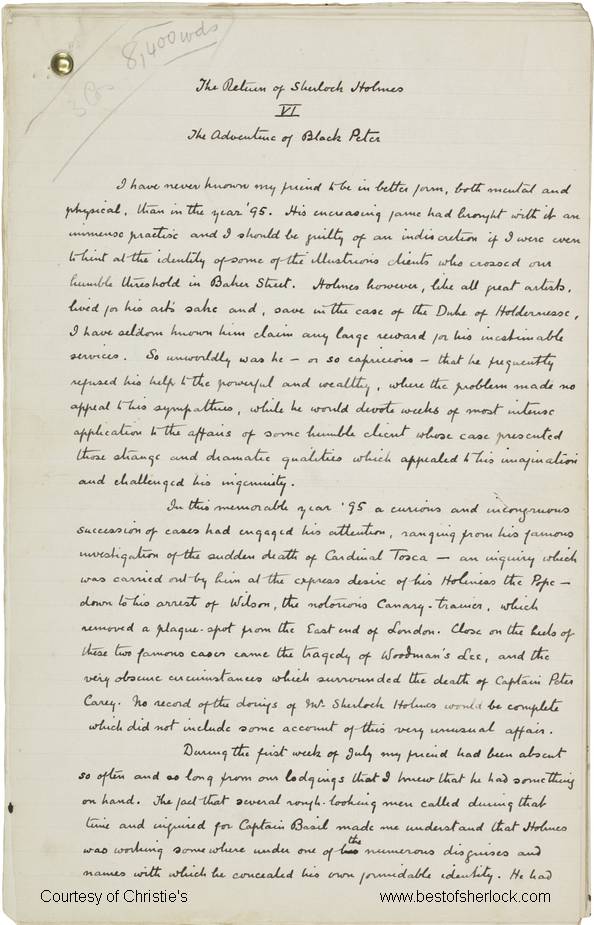 3 Cos 8,400 wds
The Return of Sherlock Holmes
VI
The Adventure of Black Peter
I have never known my friend to be in better form, both mental and
physical, than in the year '95. His increasing fame had brought with it an
immense practise and I should be guilty of an indiscretion if I were even
to hint at the identity of some of the illustrious clients who crossed our
humble threshold in Baker Street. Holmes however, like all great artists,
lived for his art's sake and, save in the case of the Duke of Holdernesse,
I have seldom known him claim any large reward for his inestimable
services. So unworldly was he – or so capricious – that he frequently
refused his help to the powerful and wealthy, where the problem made no
appeal to his sympathies, while he would devote weeks of most intense
application to the affairs of some humble client whose case presented
those strange and dramatic qualities which appealed to his imagination
and challenged his ingenuity.
In this memorable year '95 a curious and incongruous
succession of cases had engaged his attention, ranging from his famous
investigation of the sudden death of Cardinal Tosca – an inquiry which
was carried out by him at the express desire of his Holiness the Pope –
down to his arrest of Wilson, the notorious Canary-trainer, which
removed a plague-spot from the East end of London. Close on the heels of
these two famous cases came the tragedy of Woodman's Lee, and the
very obscure circumstances which surrounded the death of Captain Peter
Carey. No record of the doings of Mr. Sherlock Holmes would be complete
which did not include some account of this very unusual affair.
During the first week of July my friend had been absent
so often and so long from our lodgings that I knew that he had something
on hand. The fact that several rough-looking men called during that
time and inquired for Captain Basil made me understand that Holmes
was working somewhere under one of the numerous disguises and
names with which he concealed his own formidable identity. He had
Courtesy of Christie's www.bestofsherlock.com